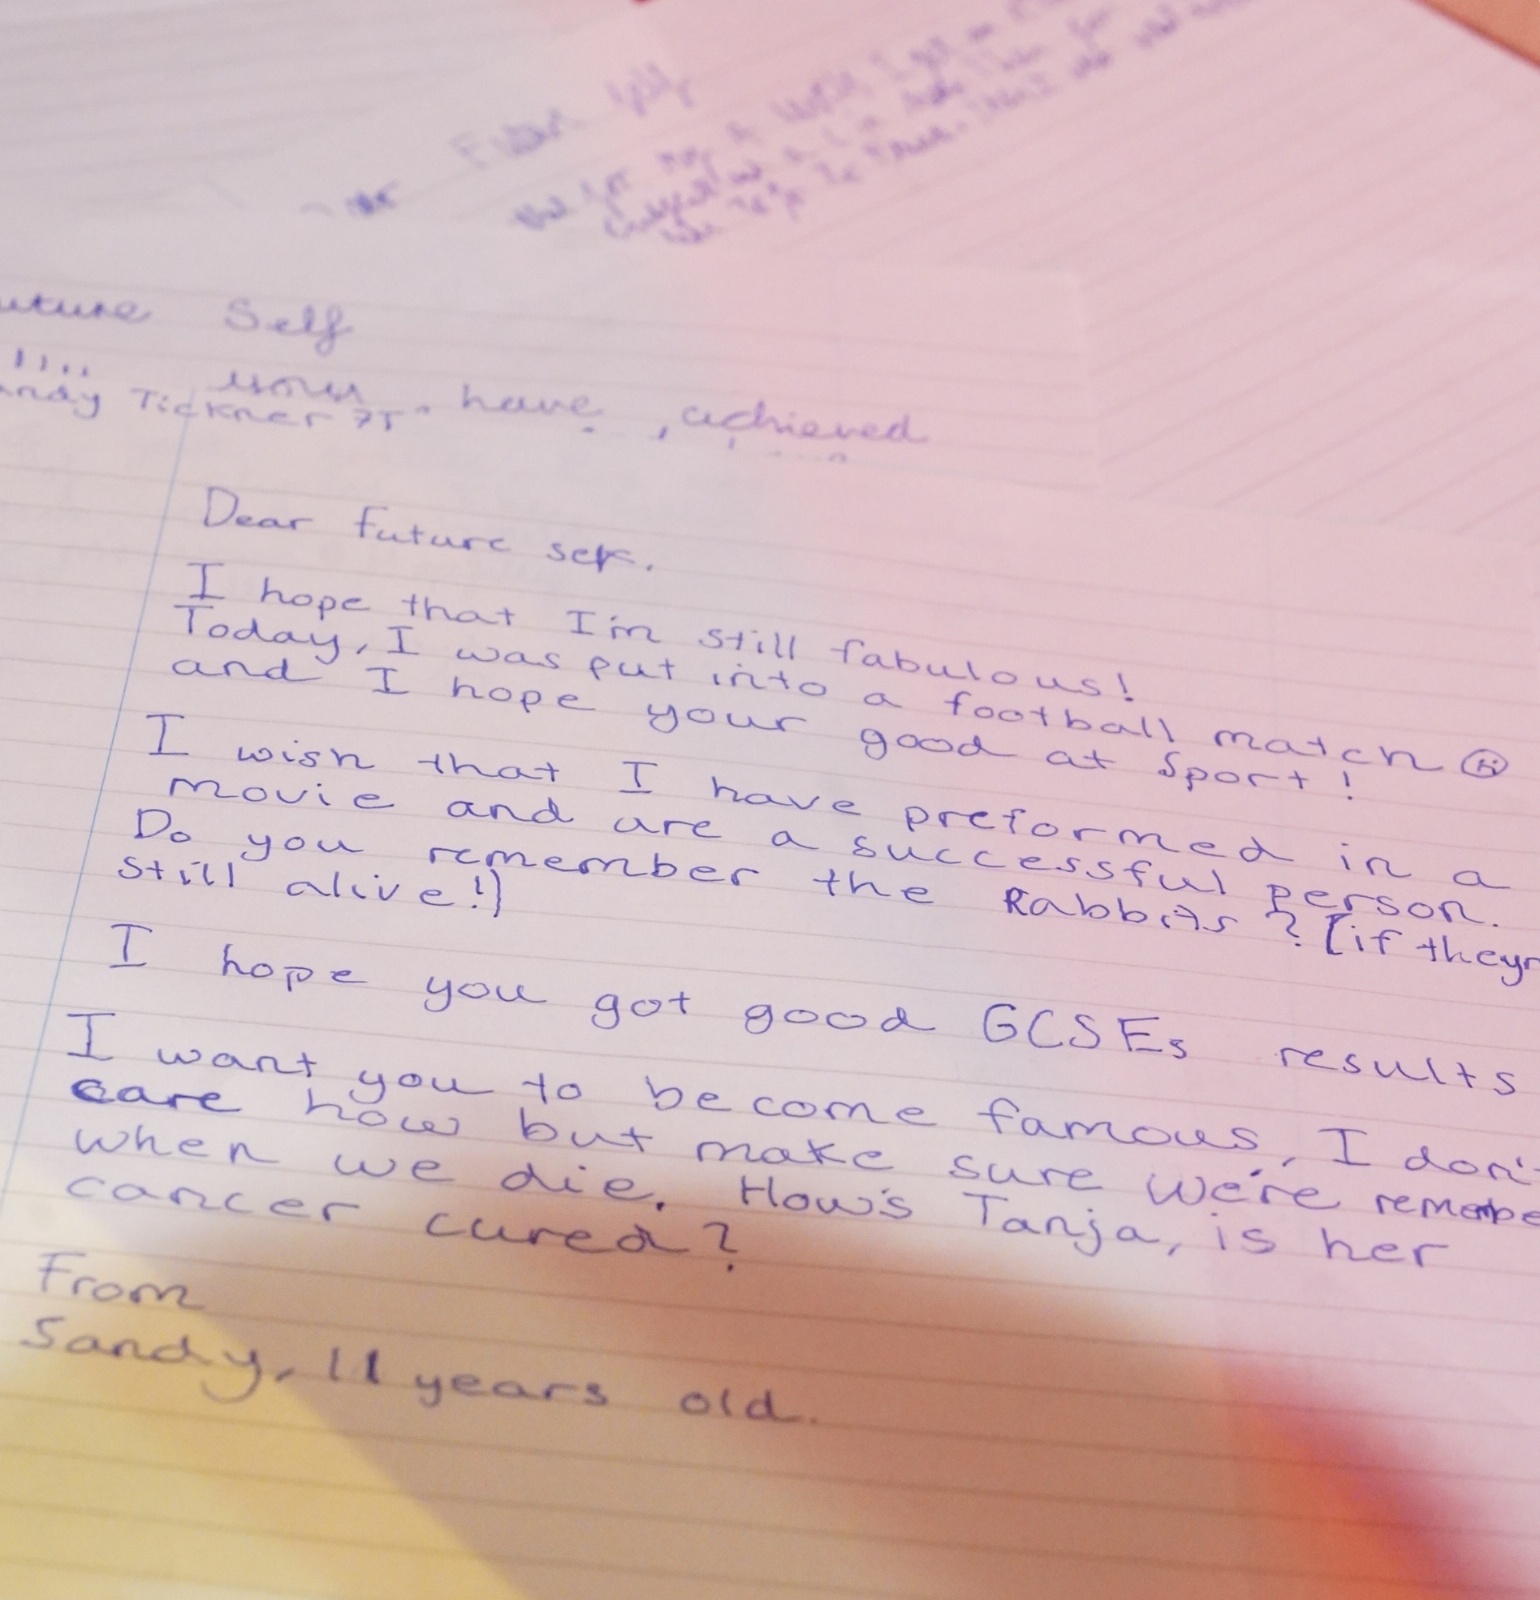 uture Self
andy Tickner 7T
have achieved
Dear future self.
I hope that I'm still fabulous!
Today, I was put into a football match
and I hope your good at sport!
I wish that I have preformed in a
movie and are a successful person.
Do you remember the Rabbits? [if theyr
still alive!]
I hope you got good GCSEs results
I want you to become famous, I don't
care how but make sure we're remembe
when we die. How's Tanja, is her
cancer cured?
From
Sandy, 11 years old.